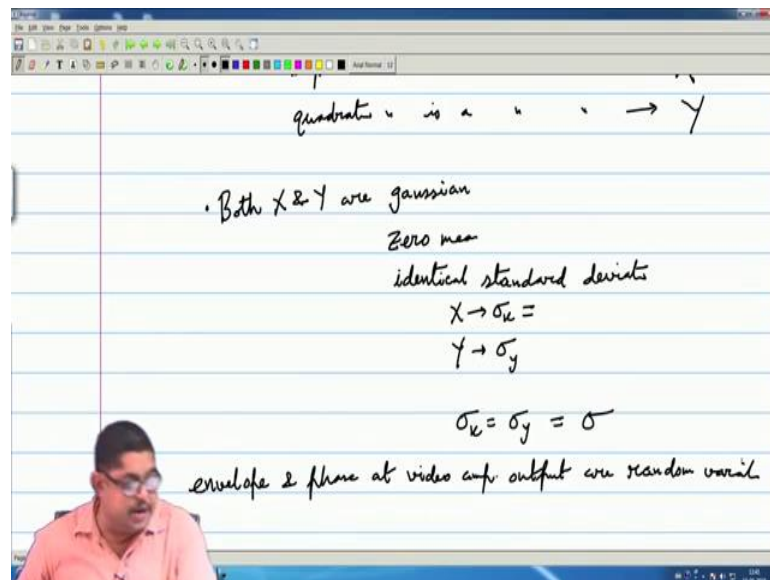 File Edit View Page Tools Options Help
quadratu " is a " " → Y
• Both X & Y are gaussian
Zero mea
identical standard deviat
X → σx =
Y → σy
σx = σy = σ
envelope & phase at video amp. output are random variabl